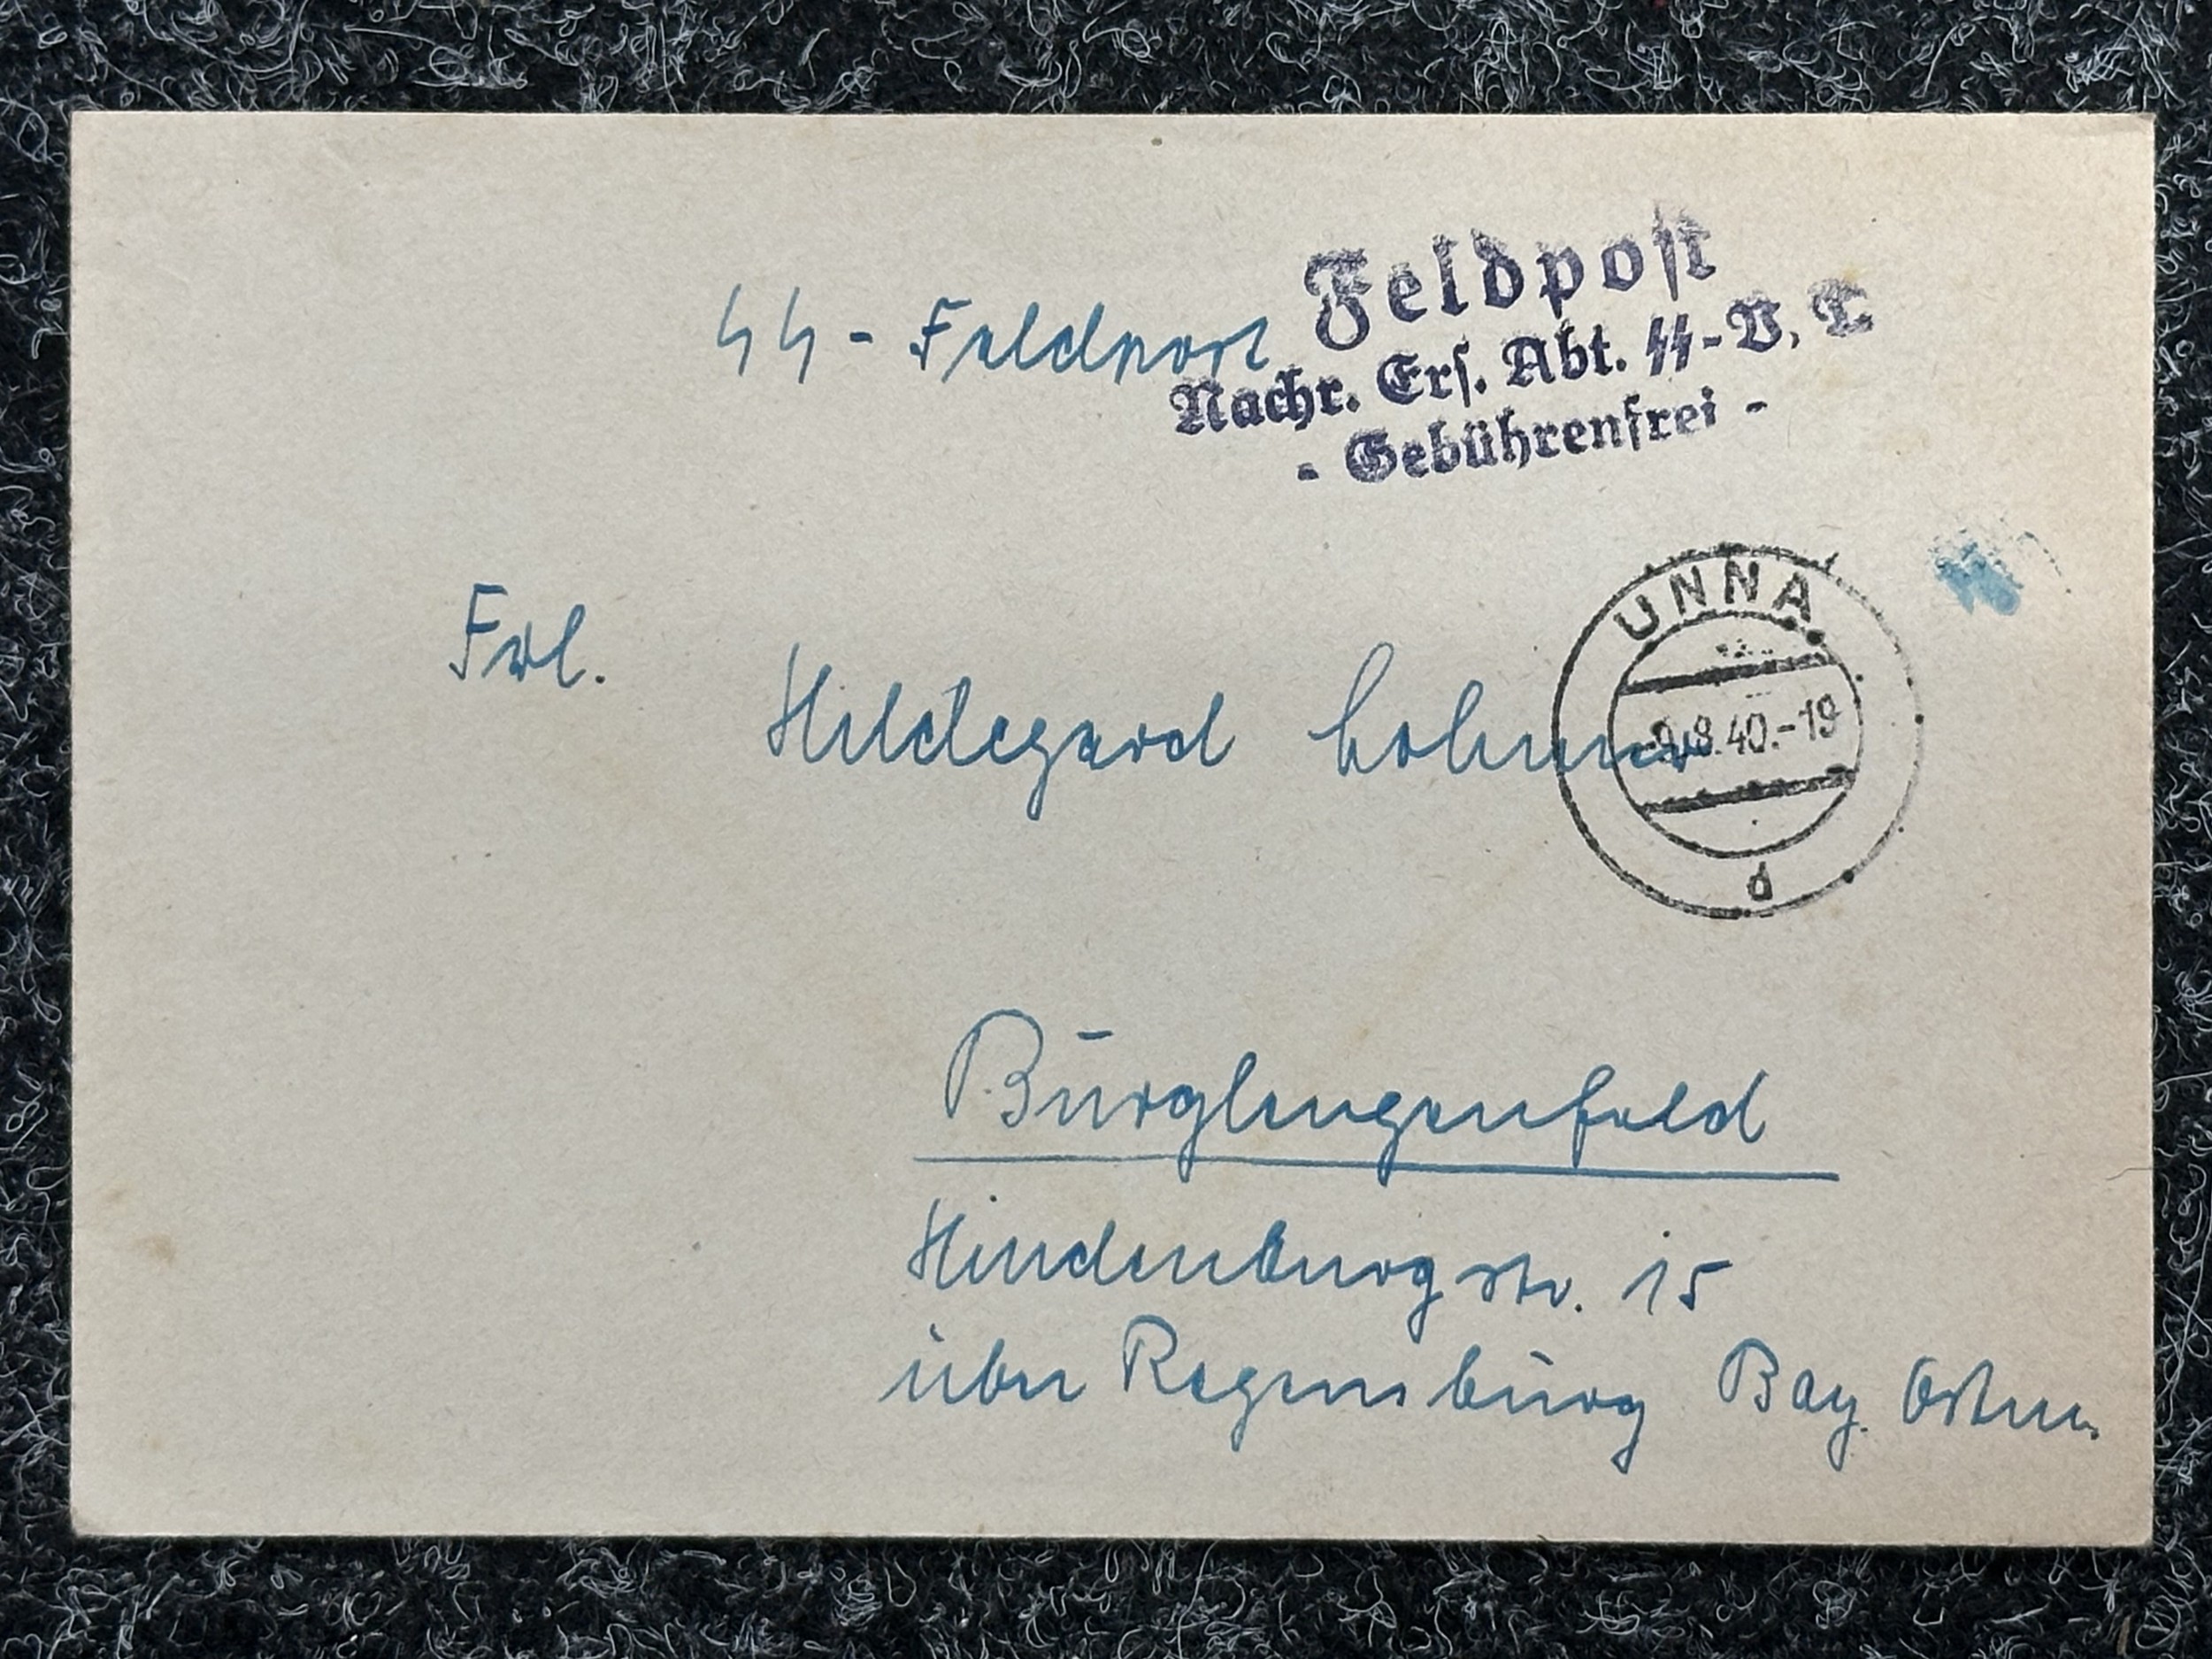 Feldpost
ᛋᛋ - Feldpost
Nachr. Ers. Abt. ᛋᛋ-V. T.
- Gebührenfrei -
UNNA
9.8.40.-19
d
Frl.
Hildegard
Burglengenfeld
Hindenburgstr. 15
über Regensburg Bay. Ostm.